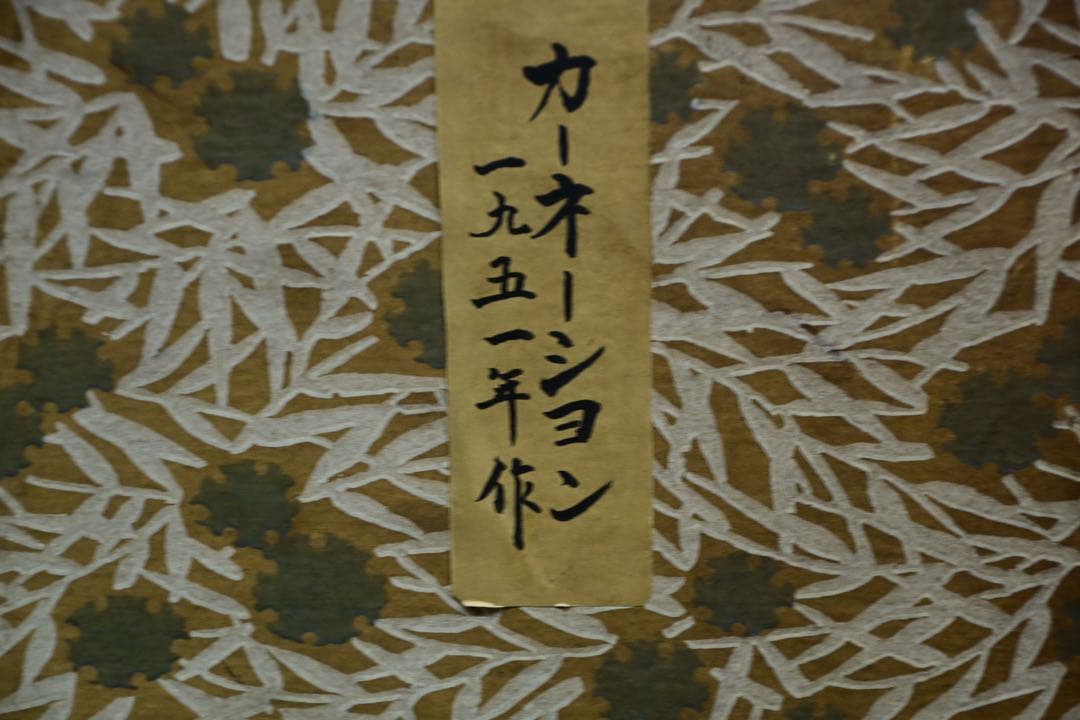 カーネーション
一九五一年作